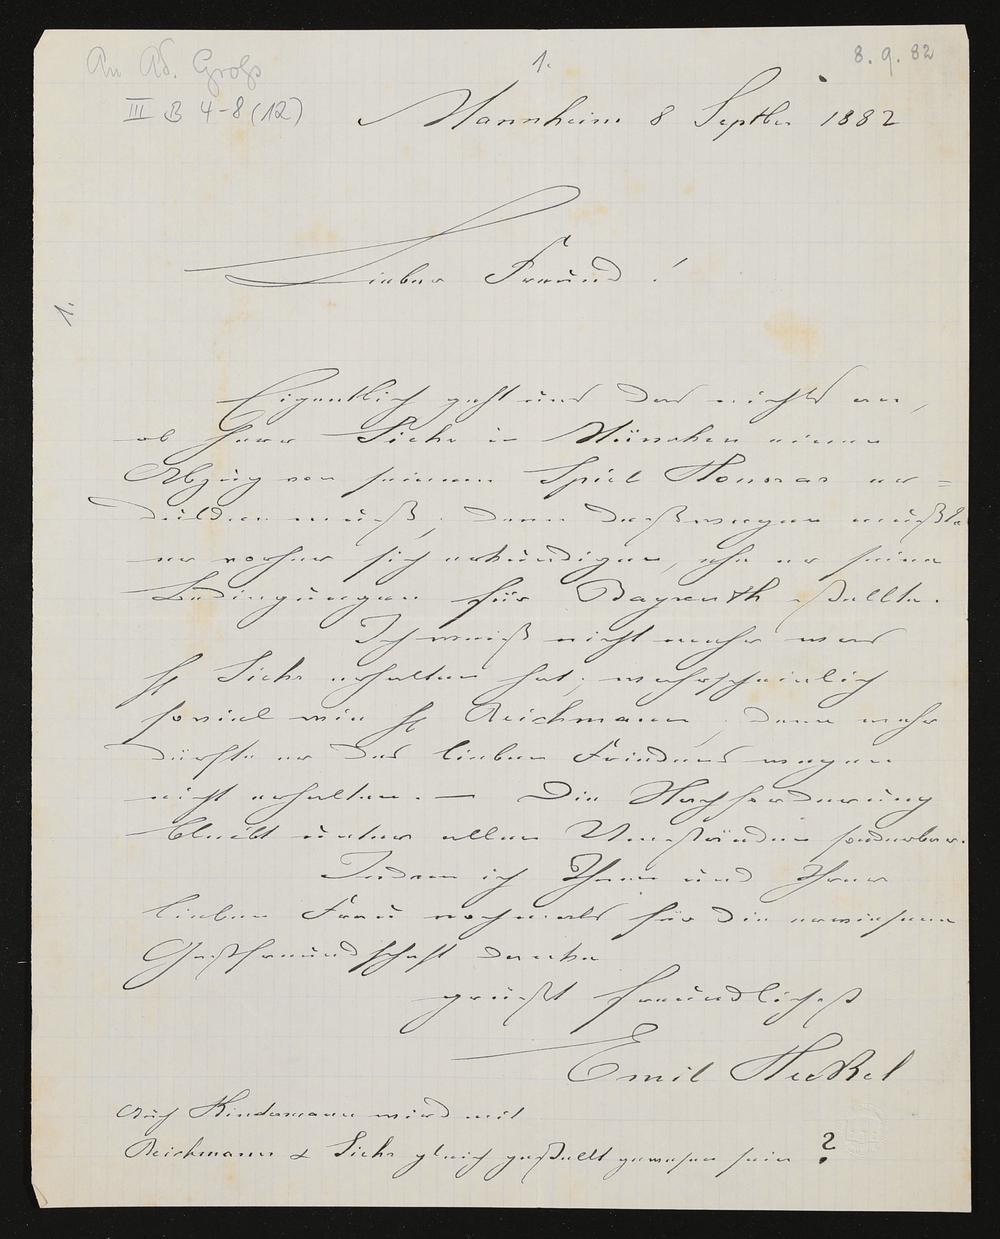 An Ad. Groß
1.
8. 9. 82
III B 4-8 (12)
Mannheim 8 Septbr 1882
Lieber Freund!
1.
Eigentlich geht uns das nichts an,
ob Herr Siehr in München einen
Abzug von seinem Spiel Honorar er=
dulden muß, denn deßwegen mußte
er vorher sich erkundigen, ehe er seine
Bedingungen für Bayreuth stellte.
Ich weiß nicht mehr was
H Siehr erhalten hat; wahrscheinlich
soviel wie H Reichmann, denn mehr
dürfte er des lieben Friedens wegen
nicht erhalten. — Die Nachforderung
bleibt unter allen Umständen sonderbar.
Indem ich Ihnen und Ihrer
lieben Frau nochmals für die erwiesene
Gastfreundschaft danke
grüßt freundlichst
Emil Heckel
Auch Kindermann wird mit
Reichmann & Siehr gleich gestellt gewesen sein ?